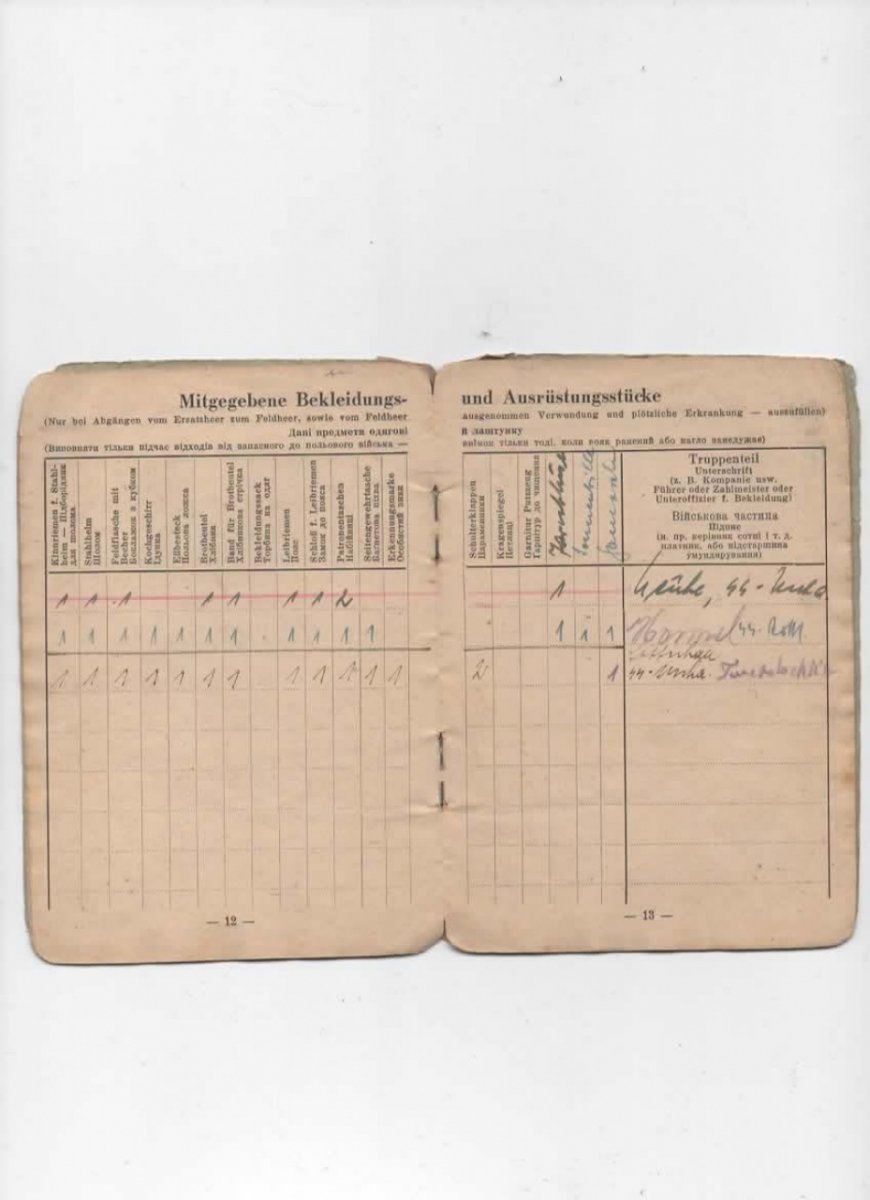 Mitgegebene Bekleidungs-
(Nur bei Abgängen vom Ersatzheer zum Feldheer, sowie vom Feldheer
Дані предмети одягові
(Виповняти тільки підчас відходів від запасного до польового війська —
Kinnriemen f. Stahl-
helm — Підборідник
для шолома
Stahlhelm
Шолом
Feldflasche mit
Becher
Боклажок з кубком
Kochgeschirr
Їдунка
Eßbesteck
Польова ложка
Brotbeutel
Хлібник
Band für Brotbeutel
Хлібникова стрічка
Bekleidungssack
Торбина на одяг
Leibriemen
Пояс
Schloß f. Leibriemen
Замок до пояса
Patronentaschen
Набійниці
Seitengewehrtasche
Багнетова піхва
Erkennungsmarke
Особистий знак
1 1 1 1 1 1 1 2
1 1 1 1 1 1 1 1 1 1 1
1 1 1 1 1 1 1 1 1 1 1 1
— 12 —
und Ausrüstungsstücke
ausgenommen Verwundung und plötzliche Erkrankung — auszufüllen)
й лаштунку
вийнок тільки тоді, коли вояк ранений або нагло занедужав)
Schulterklappen
Нараменники
Kragenspiegel
Петлиці
Garnitur Putzzeug
Гарнітур до чищення
Truppenteil
Unterschrift
(z. B. Kompanie usw.
Führer oder Zahlmeister oder
Unteroffizier f. Bekleidung)
Військова частина
Підпис
(н. пр. керівник сотні і т. д.
платник, або підстаршина
умундирування)
1
1 1 1
2 1
— 13 —